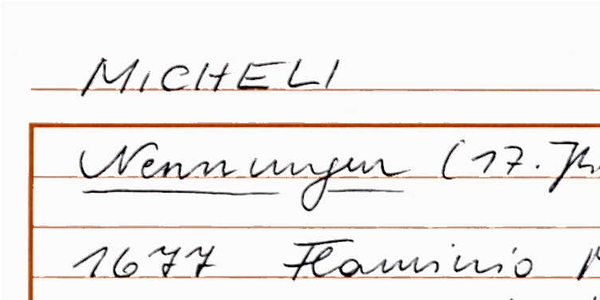 MICHELI
Nennungen (17. Jh
1677 Flaminio M